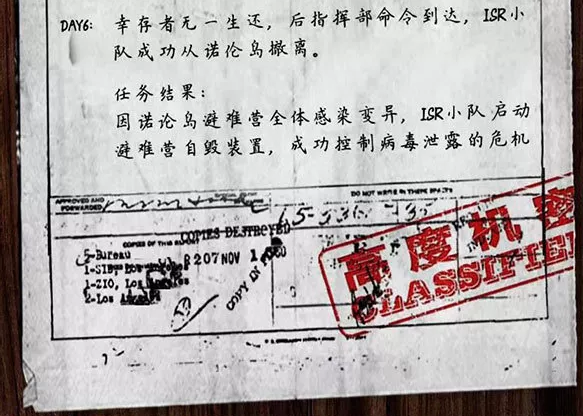 DAY6: 幸存者无一生还，后指挥部命令到达，ISR小
队成功从诺伦岛撤离。
任务结果：
因诺论岛避难营全体感染变异，ISR小队启动
避难营自毁装置，成功控制病毒泄露的危机
APPROVED AND
FORWARDED
DO NOT WRITE IN THESE SPACES
COPIES DESTROYED
COPIES OF THIS REPORT
5-Bureau
R207 NOV 1
1-ZIO, Los Angeles
2-Los
COPY IN
高度机密
CLASSIFIED